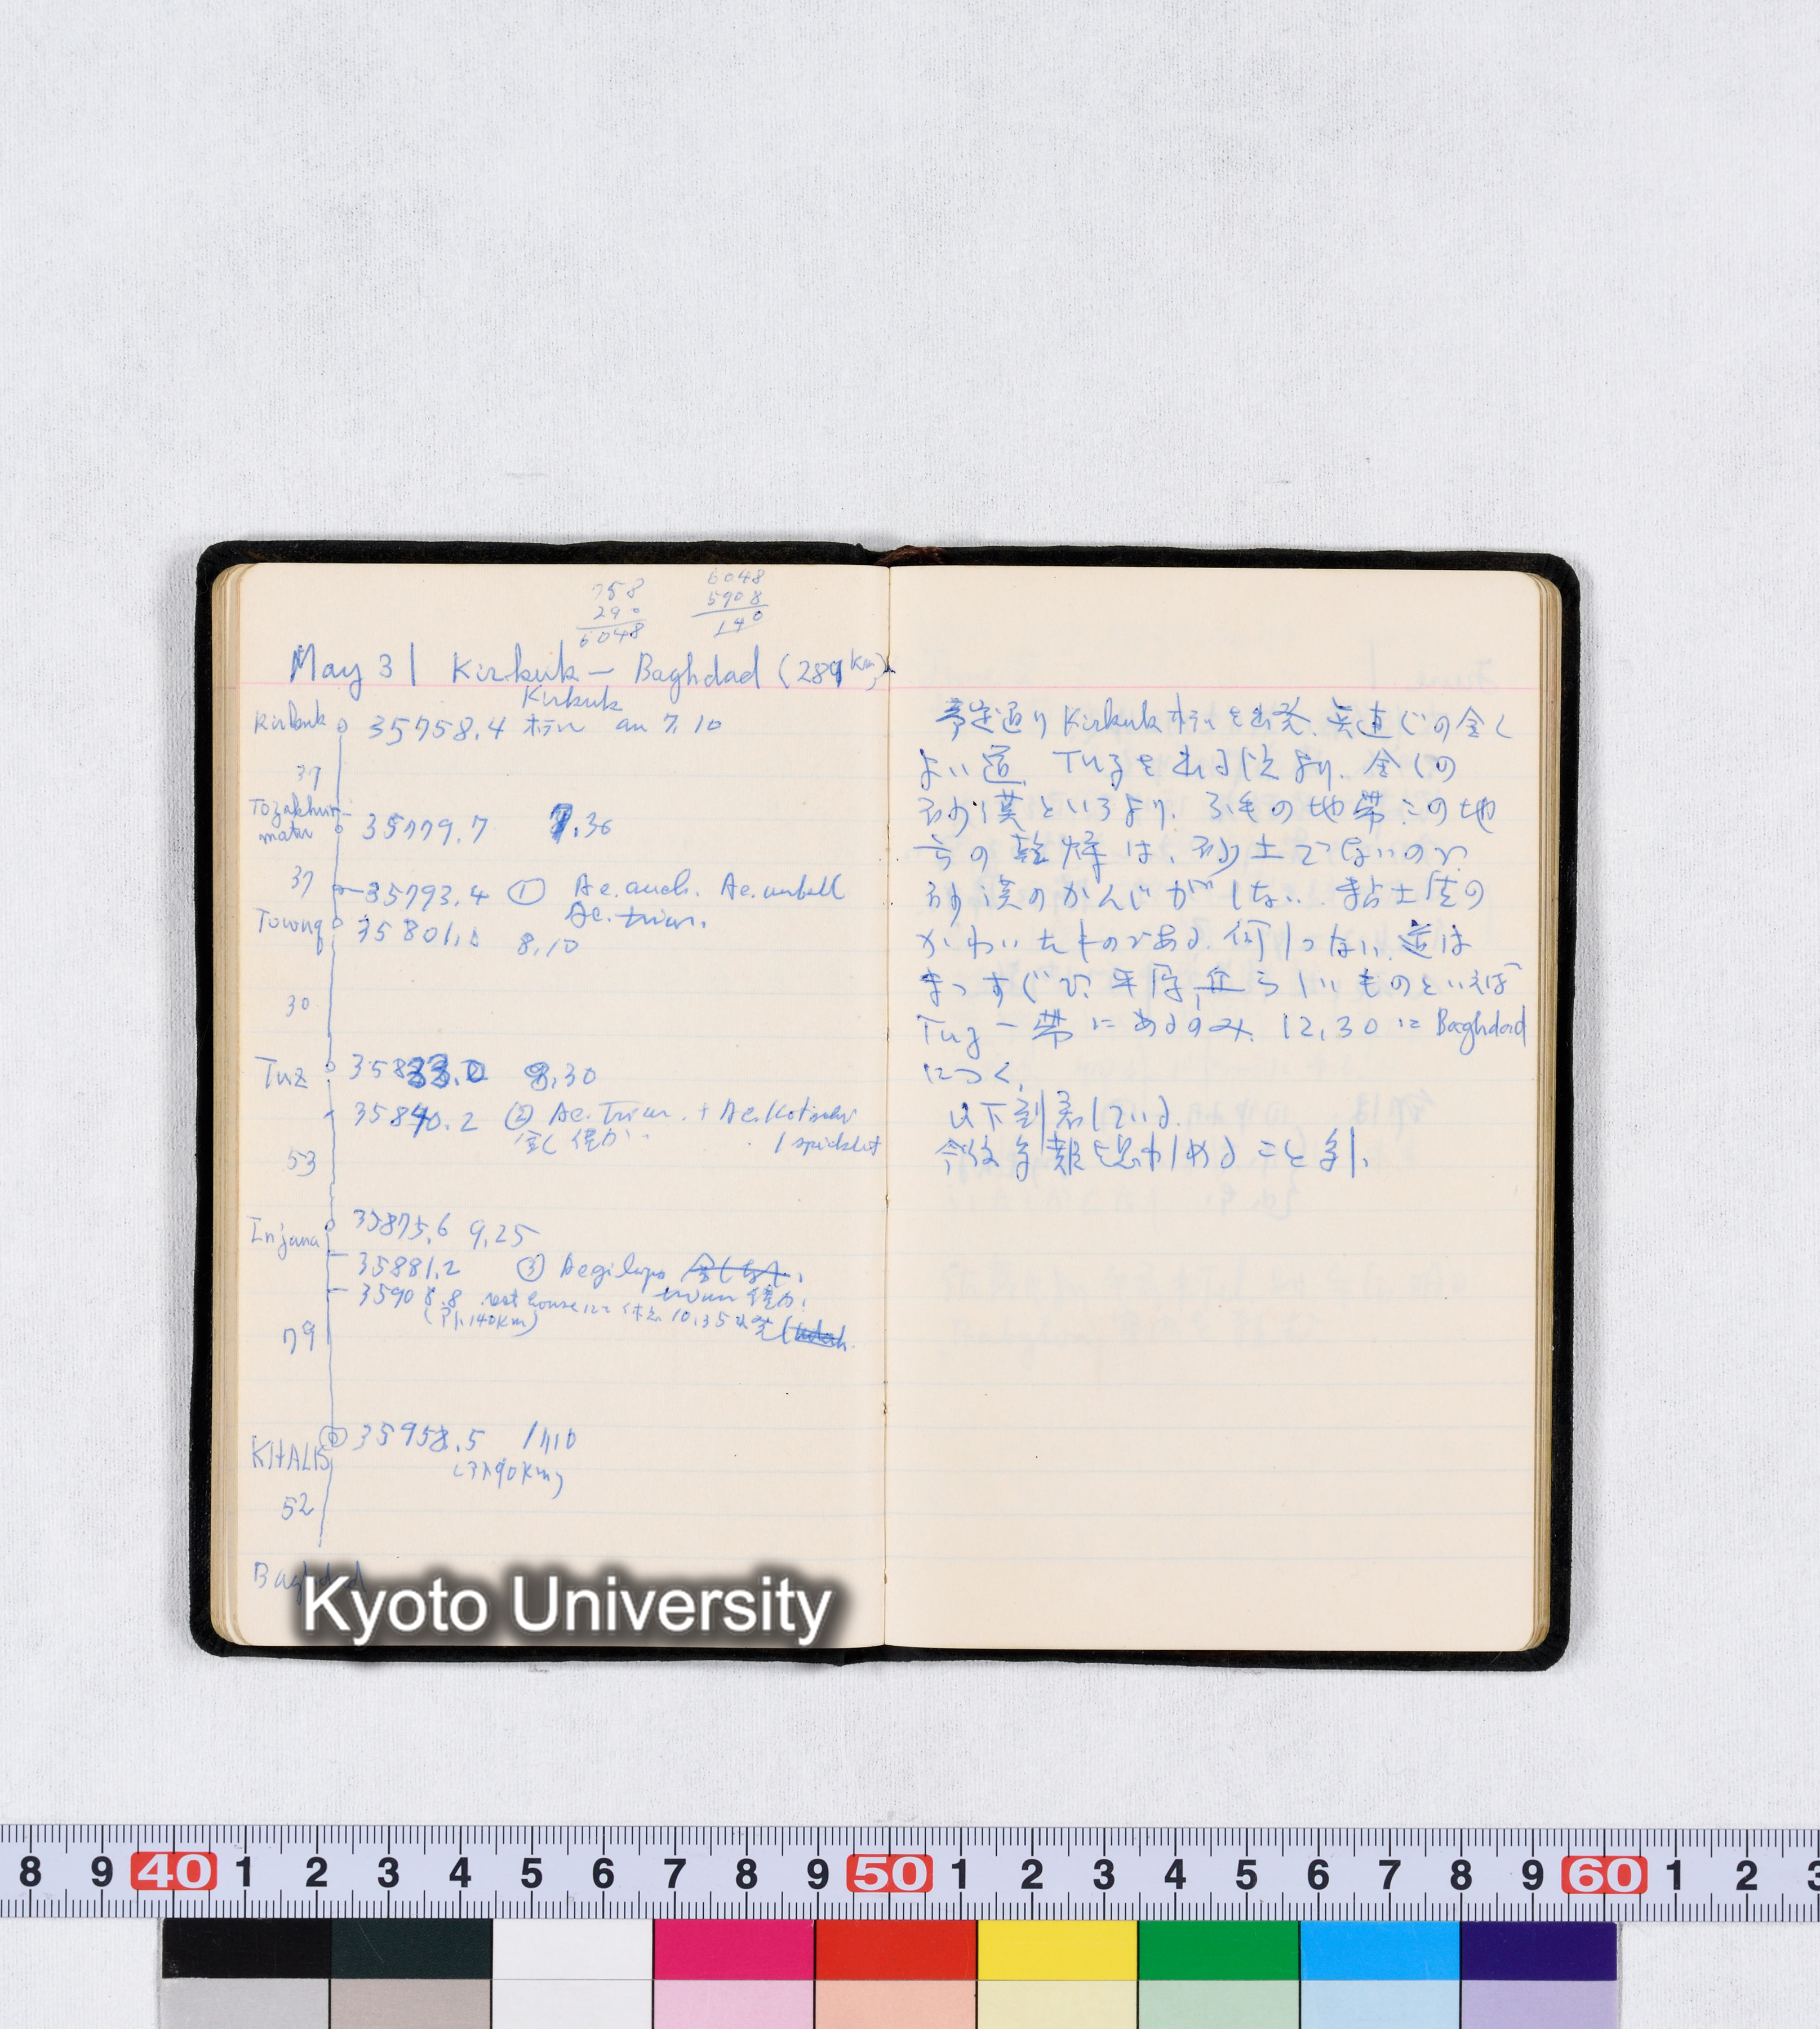 758
290
6048
6048
5908
140
May 31 Kirkuk — Baghdad (289 km)
Kirkuk
Kirkuk 35758.4 ホテル am 7.10
37
Tozakhur-
matu 35779.7 7.36
37 35793.4 ① Ae. auch. Ae. umbell
Ae. triun.
Towuq 35801.0 8.10
30
Tuz 35833.0 8.30
35840.2 ② Ae. Triun. + Ae. Kotschi
全く僅か 1 spikelet
53
Injana 35875.6 9.25
35881.2 ③ Aegilops
triun 僅か.
35908.8 rest house にて休む 10.35 出発
(アト140Km)
79
KHALIS 35958.5 11.10
(アト90Km)
52
Baghdad
予定通り Kirkuk ホテルを出発. 真直ぐの全く
よい道. Tuz を出る頃より. 全くの
砂漠というより. 不毛の地帯. この地
方の乾燥は、砂土でないので
砂漠のかんじがしない. 粘土質の
かわいたものである. 何もない. 道は
まっすぐで. 平原, 丘らしいものといえば
Tuz 一帯にあるのみ. 12.30 に Baghdad
につく.
以下到着している.
今後 を思わしめること多し.
Kyoto University
8 9 40 1 2 3 4 5 6 7 8 9 50 1 2 3 4 5 6 7 8 9 60 1 2 3